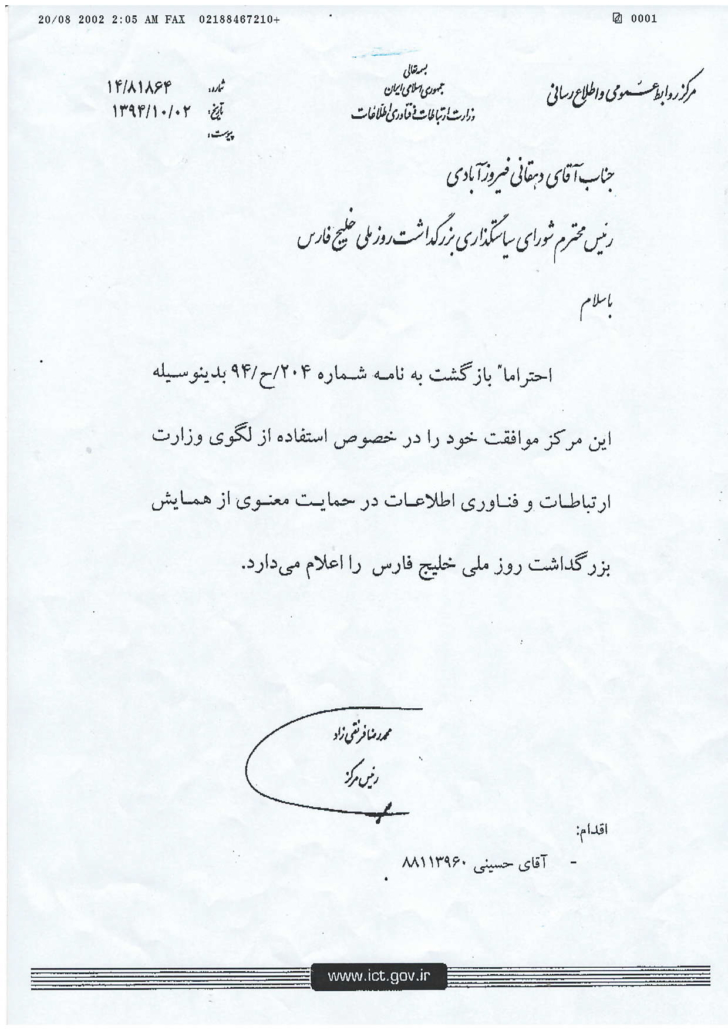 20/08 2002 2:05 AM FAX 02188467210+ 0001
بسمه تعالی
جمهوری اسلامی ایران
وزارت ارتباطات و فناوری اطلاعات
مرکز روابط عمومی و اطلاع رسانی
شماره: ۱۴/۸۱۸۶۴
تاریخ: ۱۳۹۴/۱۰/۰۲
پیوست:
جناب آقای دهقانی فیروزآبادی
رئیس محترم شورای سیاستگذاری بزرگداشت روز ملی خلیج فارس
با سلام
احتراما" بازگشت به نامه شماره ۲۰۴/ح/۹۴ بدینوسیله
این مرکز موافقت خود را در خصوص استفاده از لگوی وزارت
ارتباطات و فناوری اطلاعات در حمایت معنوی از همایش
بزرگداشت روز ملی خلیج فارس را اعلام می‌دارد.
محمدرضا فرنقی زاد
رئیس مرکز
اقدام:
- آقای حسینی ۸۸۱۱۳۹۶۰
www.ict.gov.ir